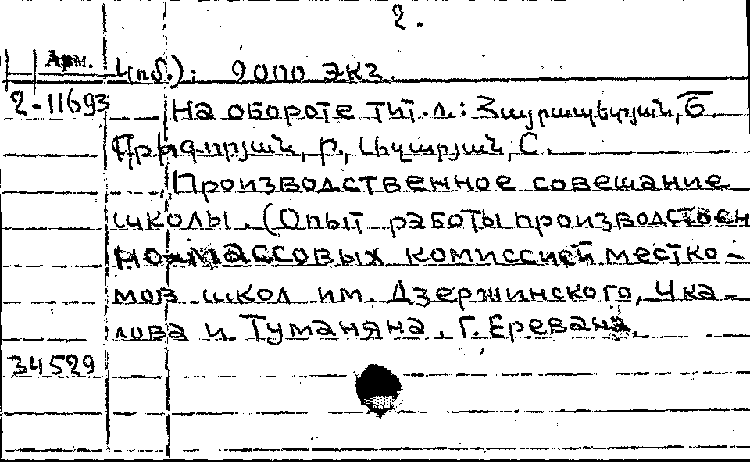 2.
Арм. 4(пб.): 9000 экз.
2-11693 На обороте тит. л.: Հայրապետյան, Ե.
Գրիգորյան, Ր., Լիպարյան, С.
Производственное совещание
школы. (Опыт работы производствен
но-массовых комиссией местко-
мов школ им. Дзержинского, Чка-
лова и Туманяна. Г. Еревана.
34529